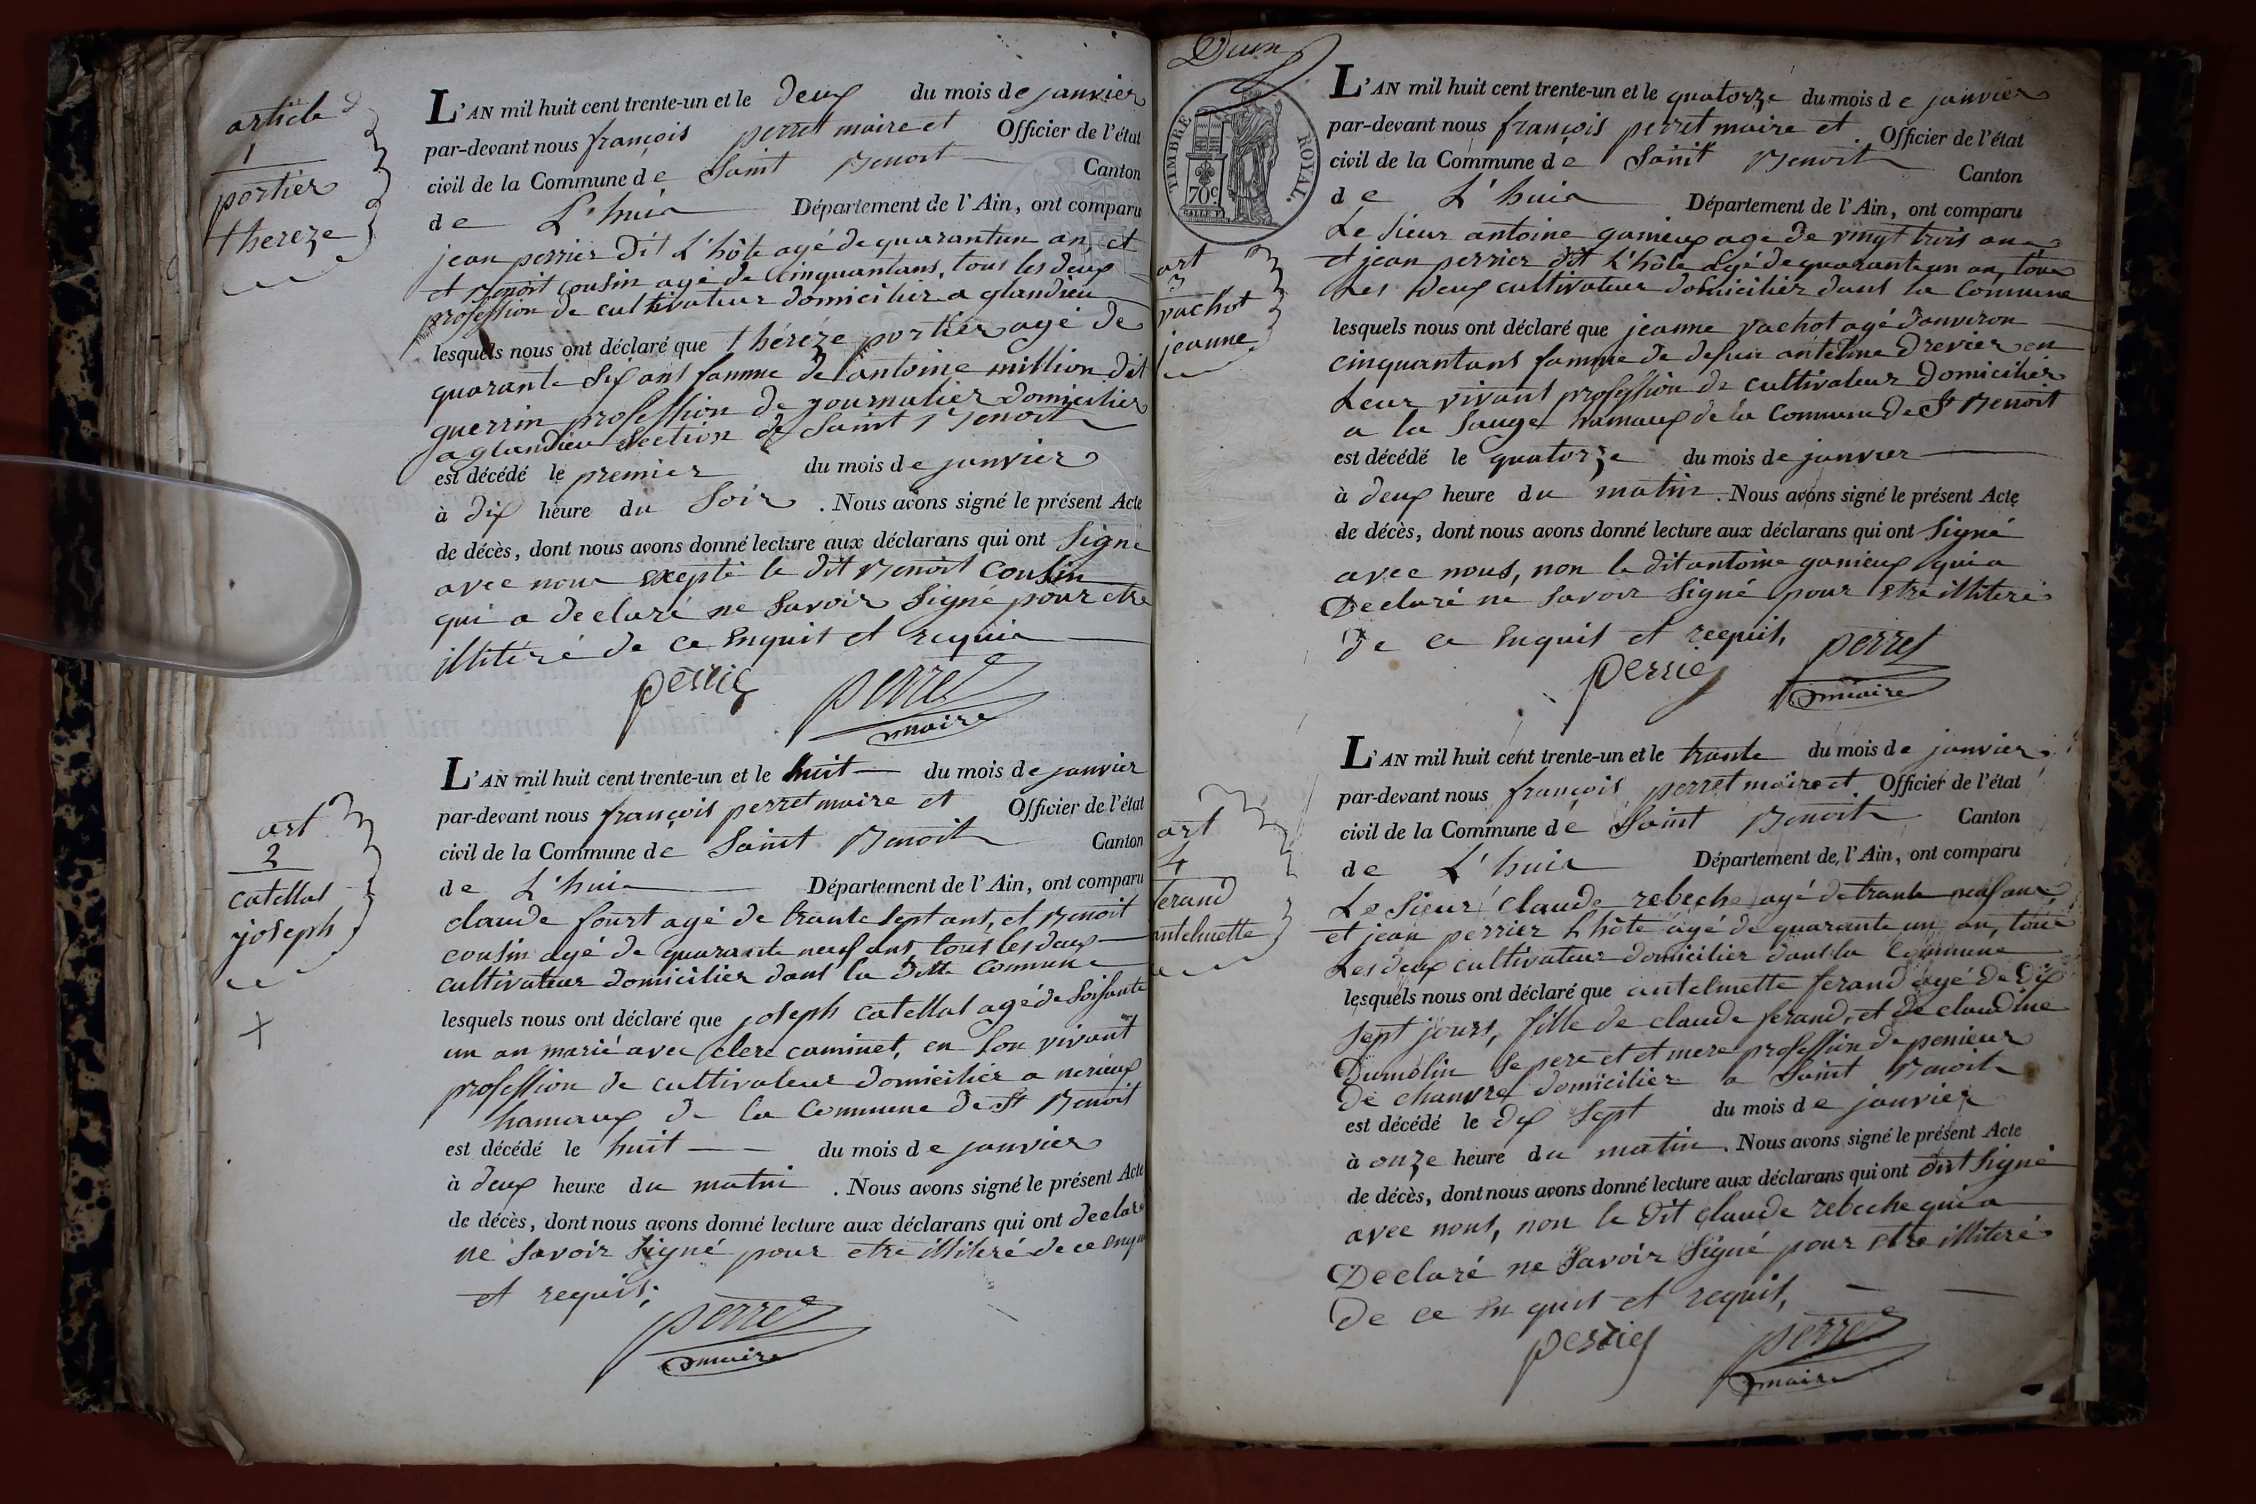 article
1
portier
thereze
L'AN mil huit cent trente-un et le deux du mois de janvier
par-devant nous françois perret maire et Officier de l'état
civil de la Commune de Saint Benoit Canton
de L'huis Département de l'Ain, ont comparu
jean perrier dit L'hôte agé de quarantun an, et
et Benoit cousin agé de Cinquantans, tous les deux
profession de cultivateur domicilier a glandieu
lesquels nous ont déclaré que thérèze portier agé de
quarante six ans famme de antoine million dit
guerrin profession de journalier domicilier
a glandieu section de Saint Benoit
est décédé le premier du mois de janvier
à dix heure du Soir . Nous avons signé le présent Acte
de décès, dont nous avons donné lecture aux déclarans qui ont Signé
avec nous excepté le dit Benoit cousin
qui a declaré ne Savoir Signé pour etre
illitéré de ce Enquis et requis
perrier perret
maire
art
2
catellat
joseph
L'AN mil huit cent trente-un et le huit du mois de janvier
par-devant nous françois perret maire et Officier de l'état
civil de la Commune de Saint Benoit Canton
de L'huis Département de l'Ain, ont comparu
claude fourt agé de trante Sept ans, et Benoit
cousin agé de quarante neuf ans tous les deux
cultivateur domicilier dans la ditte commune
lesquels nous ont déclaré que joseph catellat agé de Soisante
un an marié avec clere caminet, en Son vivant
profession de cultivateur domicilier a nerieux
hamaux de la Commune de St Benoit
est décédé le huit du mois de janvier
à deux heure du matin . Nous avons signé le présent Acte
de décès, dont nous avons donné lecture aux déclarans qui ont declaré
ne Savoir Signé pour etre illiteré de ce enquis
et requis;
perret
maire
TIMBRE ROYAL.
70c
art
3
vachot
jeanne
L'AN mil huit cent trente-un et le quatorze du mois de janvier
par-devant nous françois perret maire et Officier de l'état
civil de la Commune de Saint Benoit Canton
de L'huis Département de l'Ain, ont comparu
Le Sieur antoine ganieux age de vingt trois ans
et jean perrier dit L'hôte agé de quarante un an, tous
Les deux cultivateur domicilier dans la Commune
lesquels nous ont déclaré que jeanne vachot agé d'anviron
cinquantans famme de defun antelme drevier en
Leur vivant profession de cultivateur domicilier
a la Sauge hamaux de la Commune de St Benoit
est décédé le quatorze du mois de janvier
à deux heure du matin . Nous avons signé le présent Acte
de décès, dont nous avons donné lecture aux déclarans qui ont Signé
avec nous, non le dit antoine ganieux qui a
Declaré ne Savoir Signé pour etre illiteré
de ce Enquis et requis,
perrier perret
maire
art
4
ferand
antelmette
L'AN mil huit cent trente-un et le trante du mois de janvier
par-devant nous françois perret maire et Officier de l'état
civil de la Commune de Saint Benoit Canton
de L'huis Département de l'Ain, ont comparu
Le Sieur claude rebeche agé de trante neuf ans,
et jean perrier L'hôte agé de quarante un an, tous
Les deux cultivateur domicilier dans la Commune
lesquels nous ont déclaré que antelmette ferand agé de Dix
Sept jours, fille de claude ferand, et de claudine
Dumolin Se pere et et mere profession de penieur
de chanvre domicilier a Saint Benoit
est décédé le dix Sept du mois de janvier
à onze heure du matin . Nous avons signé le présent Acte
de décès, dont nous avons donné lecture aux déclarans qui ont Signé
avec nous, non le dit claude rebeche qui a
Declaré ne Savoir Signé pour etre illiteré
de ce Enquis et requis,
perrier perret
maire